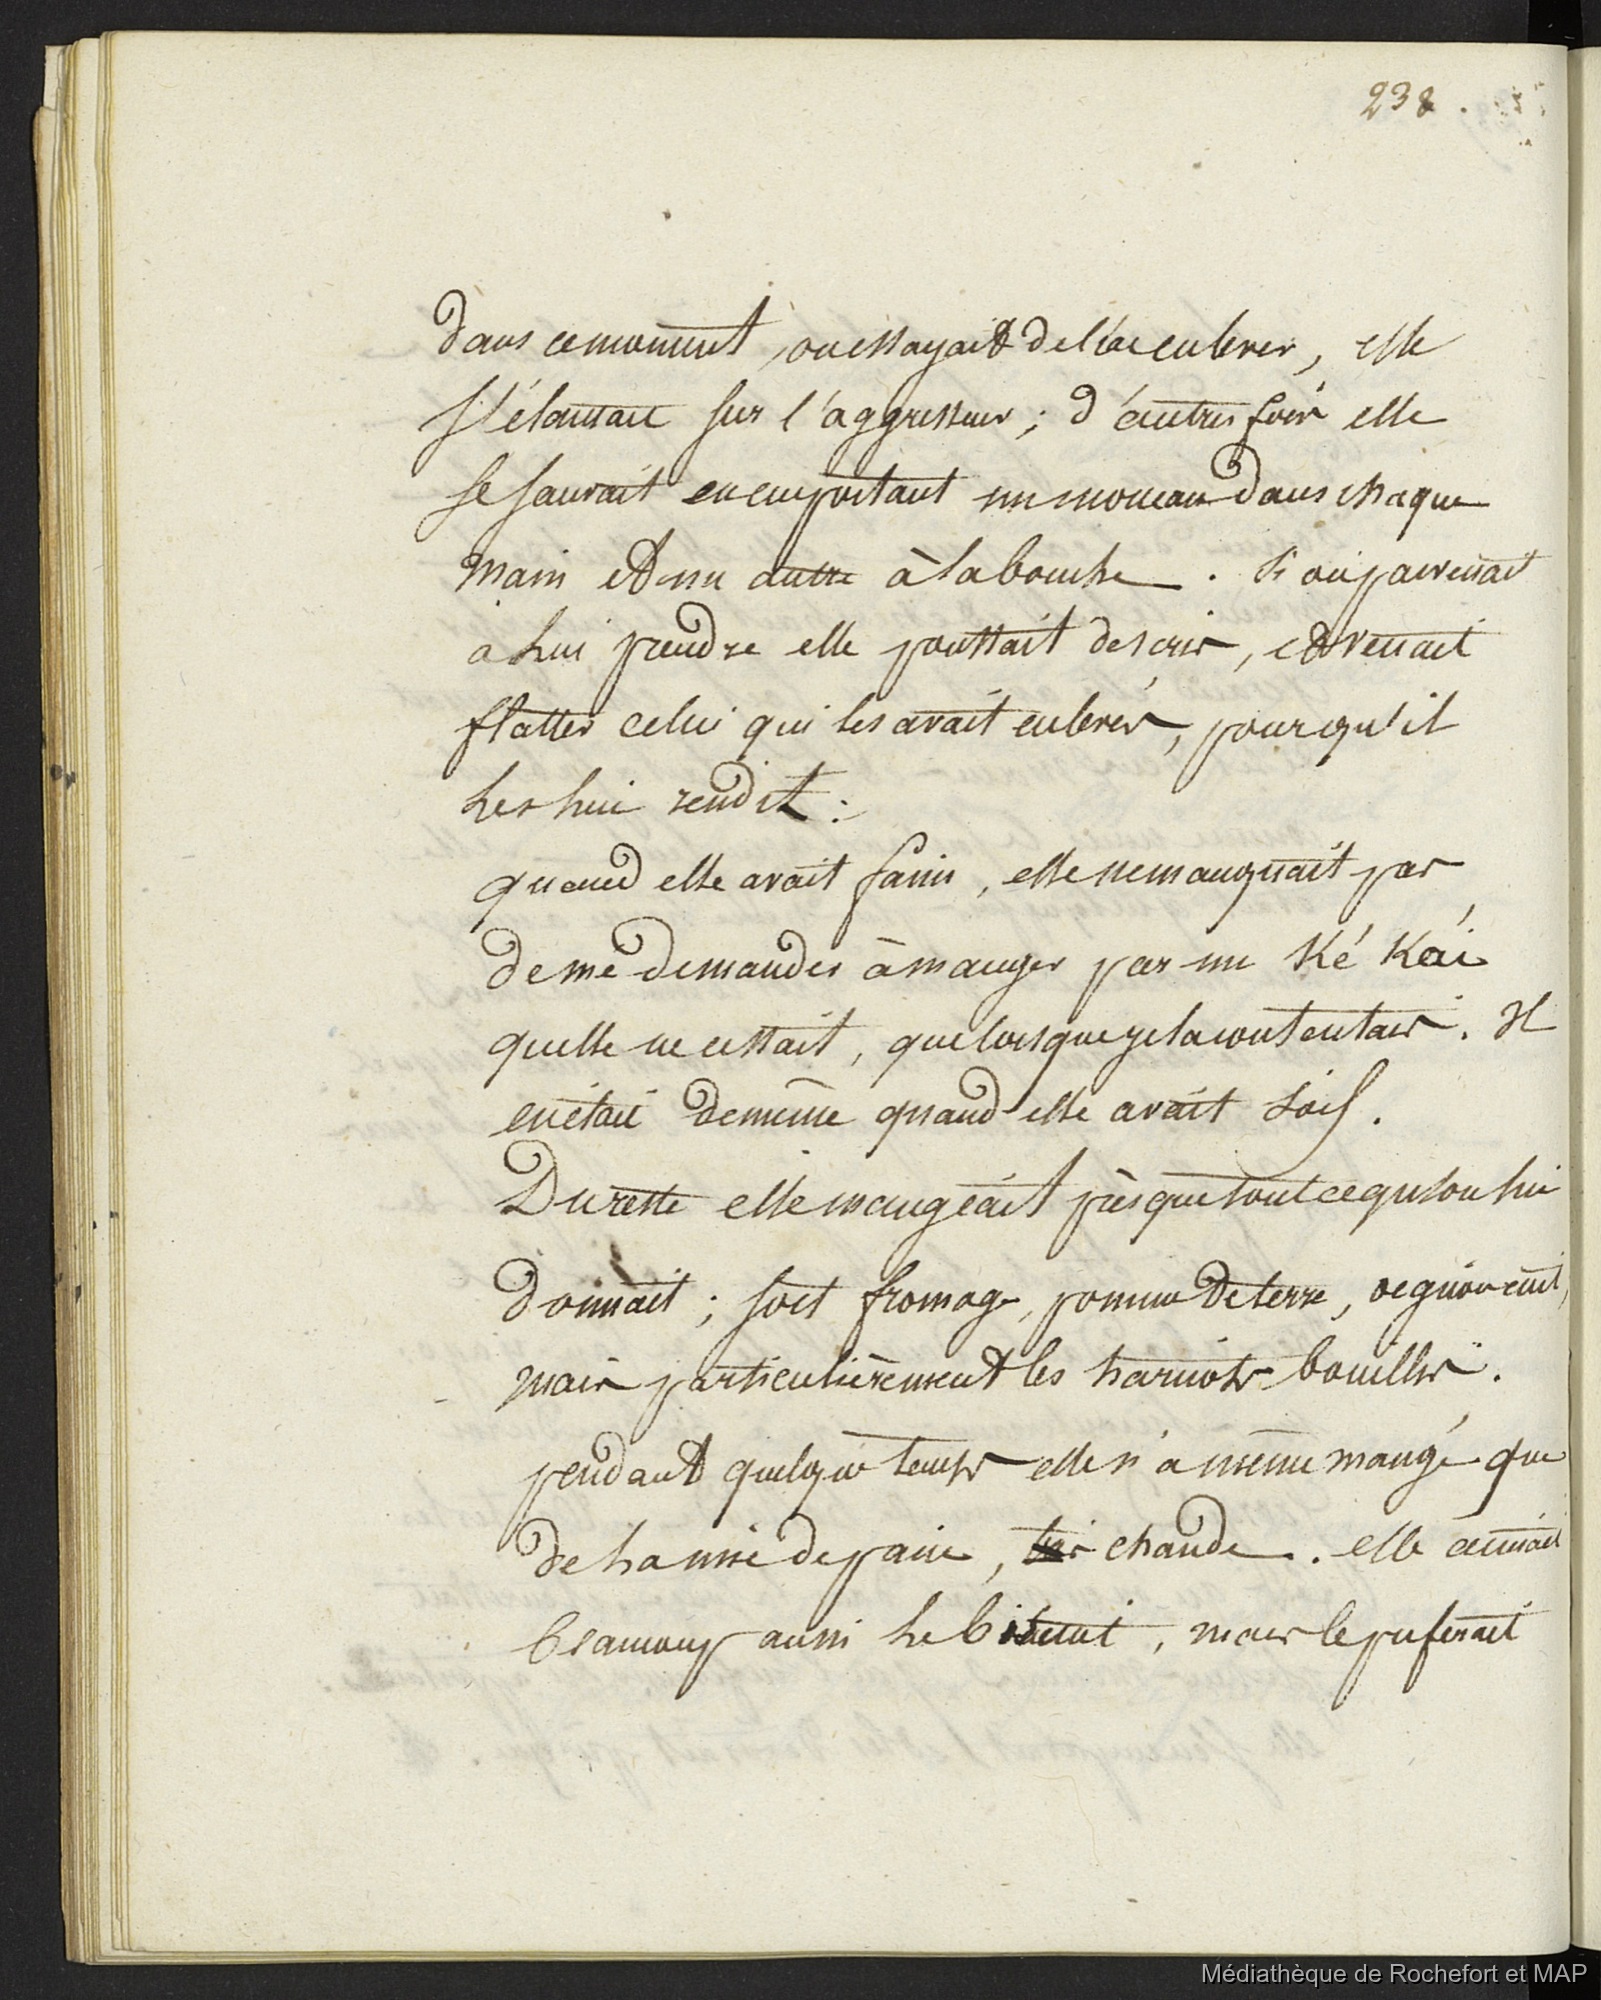 238.
dans ce moment, on essayait de les enlever, elle
s'élançait sur l'aggresseur; d'autres fois elle
se sauvait en emportant un morceau dans chaque
main et un autre à la bouche. Si on parvenait
à lui prendre elle poussait des cris, et venait
flatter celui qui les avait enlevés, pour qu'il
les lui rendit:
quand elle avait faim, elle ne manquait pas
de me demander à manger par un Ké Kai
quelle ne cessait, que lorsque je la contentais. Il
en était de même quand elle avait soif.
Du reste elle mangeait présque tout ce qu'on lui
donnait; soit fromage, pomme de terre, oegnon cuit,
mais particulièrement les haricots bouillis.
pendant quelque temps elle n'a même mangé que
de la mie de pain, chaude. elle aimait
beaucoup aussi le biscuit, mais le préferait
Médiathèque de Rochefort et MAP